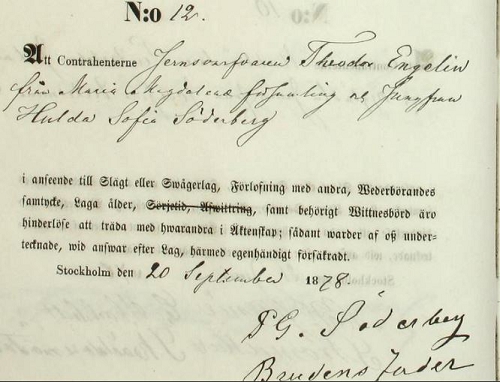 N:o 12.
Att Contrahenterne Jernsvarfvaren Theodor Engelin
från Maria Magdalenæ församling och Jungfrun
Hulda Sofia Söderberg
i anseende till Slägt eller Swägerlag, Förlofning med andra, Wederbörandes
samtycke, Laga ålder, Sörjetid, Afwittring, samt behörigt Wittnesbörd äro
hinderlöse att träda med hwarandra i Äktenskap; sådant warder af oß under-
tecknade, wid answar efter Lag, härmed egenhändigt försäkradt.
Stockholm den 20 September 1878.
P G. Söderberg
Brudens Fader